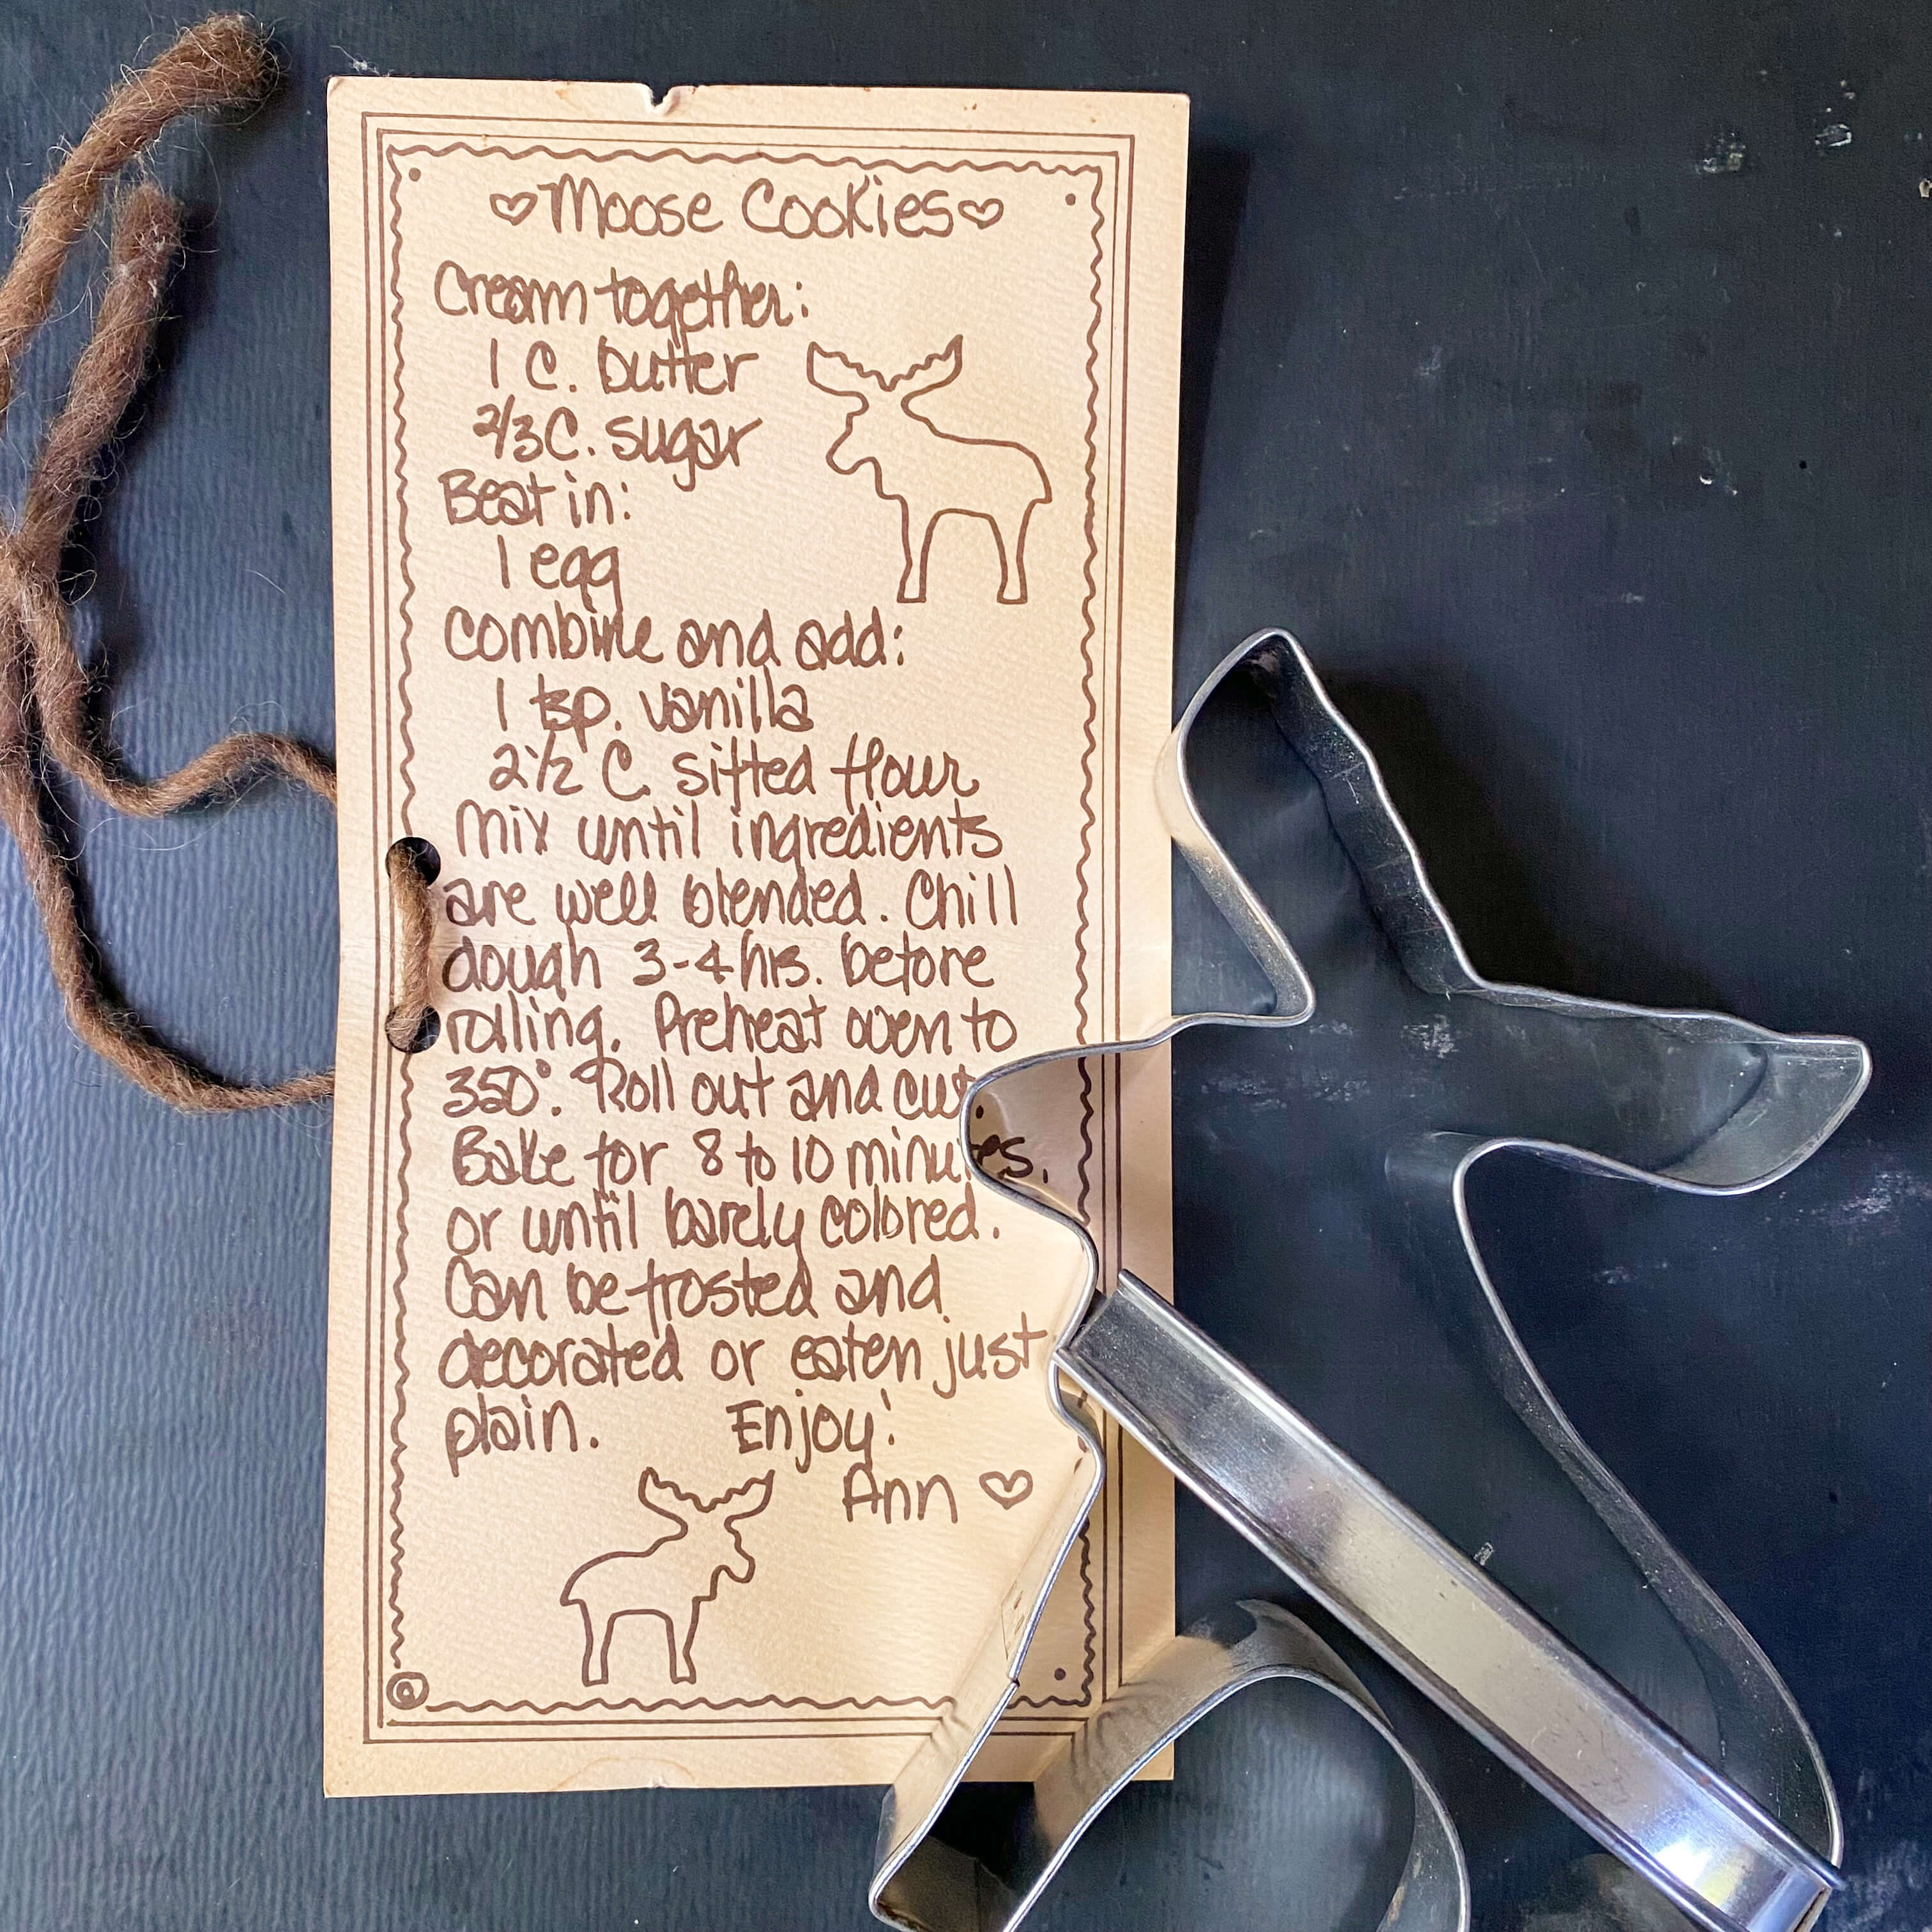 Moose Cookies
Cream together:
1 C. butter
2/3 C. sugar
Beat in:
1 egg
Combine and add:
1 tsp. vanilla
2 1/2 C. sifted flour
Mix until ingredients
are well blended. Chill
dough 3-4 hrs. before
rolling. Preheat oven to
350°. Roll out and cut.
Bake for 8 to 10 minutes.
or until barely colored.
Can be frosted and
decorated or eaten just
plain. Enjoy!
Ann